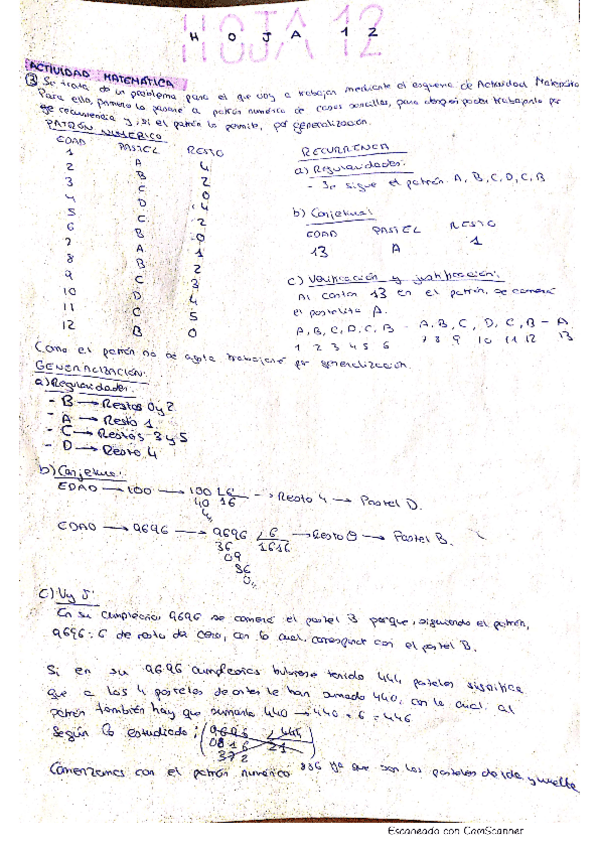 HOJA 12
H O J A 1 2
ACTIVIDAD MATEMÁTICA
③ Se trata de un problema para el que voy a trabajar mediante el esquema de Actividad Matemática
Para ello, primero lo pasaré a patrón numérico de casos sencillos, para después poder trabajarlo por
recurrencia y, si el patrón lo permite, por generalización.
PATRÓN NUMÉRICO
EDAD PASTEL RESTO
1 A
2 B 2
3 C 0
4 D 4
5 C 2
6 B 0
7 A 1
8 B 2
9 C 3
10 D 4
11 C 5
12 B 0
RECURRENCIA
a) Regularidades:
- Se sigue el patrón A, B, C, D, C, B
b) Conjetura:
EDAD PASTEL RESTO
13 A 1
c) Verificación y justificación:
Al contar 13 en el patrón, se comerá
el pastelito A.
A, B, C, D, C, B - A, B, C, D, C, B - A
1 2 3 4 5 6 7 8 9 10 11 12 13
Como el patrón no se agota trabajaré por generalización.
GENERALIZACIÓN:
a) Regularidades:
- B → Restos 0 y 2
- A → Resto 1
- C → Restos 3 y 5
- D → Resto 4
b) Conjetura:
EDAD → 100 → 100 6 → Resto 4 → Pastel D.
40 16
4
EDAD → 9696 → 9696 6 → Resto 0 → Pastel B.
36 1616
09
36
0
c) V y J:
En su cumpleaños 9696 se comerá el pastel B porque, siguiendo el patrón,
9696 : 6 de resto da cero, con lo cual, corresponde con el pastel B.
Si en su 9696 cumpleaños hubiese tenido 444 pasteles significa
que a los 4 pasteles de antes le han sumado 440, con lo cual al
patrón también hay que sumarle 440 → 440 + 6 = 446
Según lo estudiado: (9696 446
0816 21
372)
Comenzamos con el patrón numérico 886 ya que son los pasteles de ida y vuelta
Escaneado con CamScanner